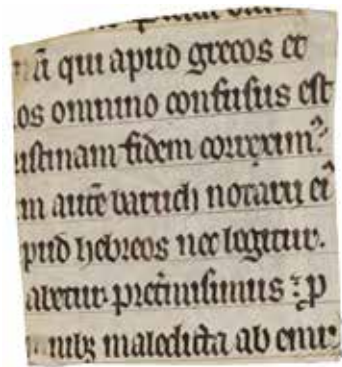 nã qui apud grecos et
os omnino confusus est
istinam fidem correxim᷒
m autē baruch notarii ei᷒
pud hebreos nec legitur.
abetur. pret̃misimus ⁊ p
mnibꝫ maledicta ab emu